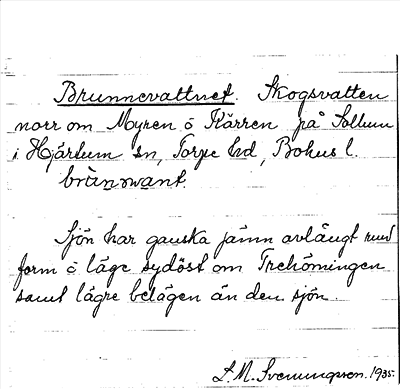 Brunnevattnet. Skogsvatten
norr om Myren ö Kärren på Sollum
i Hjärtum sn, Torpe hd, Bohus l.
brùnəvant.
Sjön har ganska jämn avlångt rund
form ö läge sydöst om Trehörningen
samt lägre belägen än den sjön.
S. M. Svenungsson. 1935.